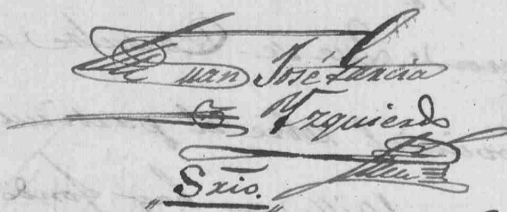 Juan José García
Yzquierdo
"Srio."